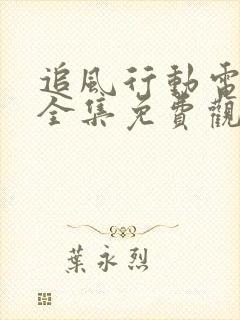 追風行動電
全集免費觀
葉永烈